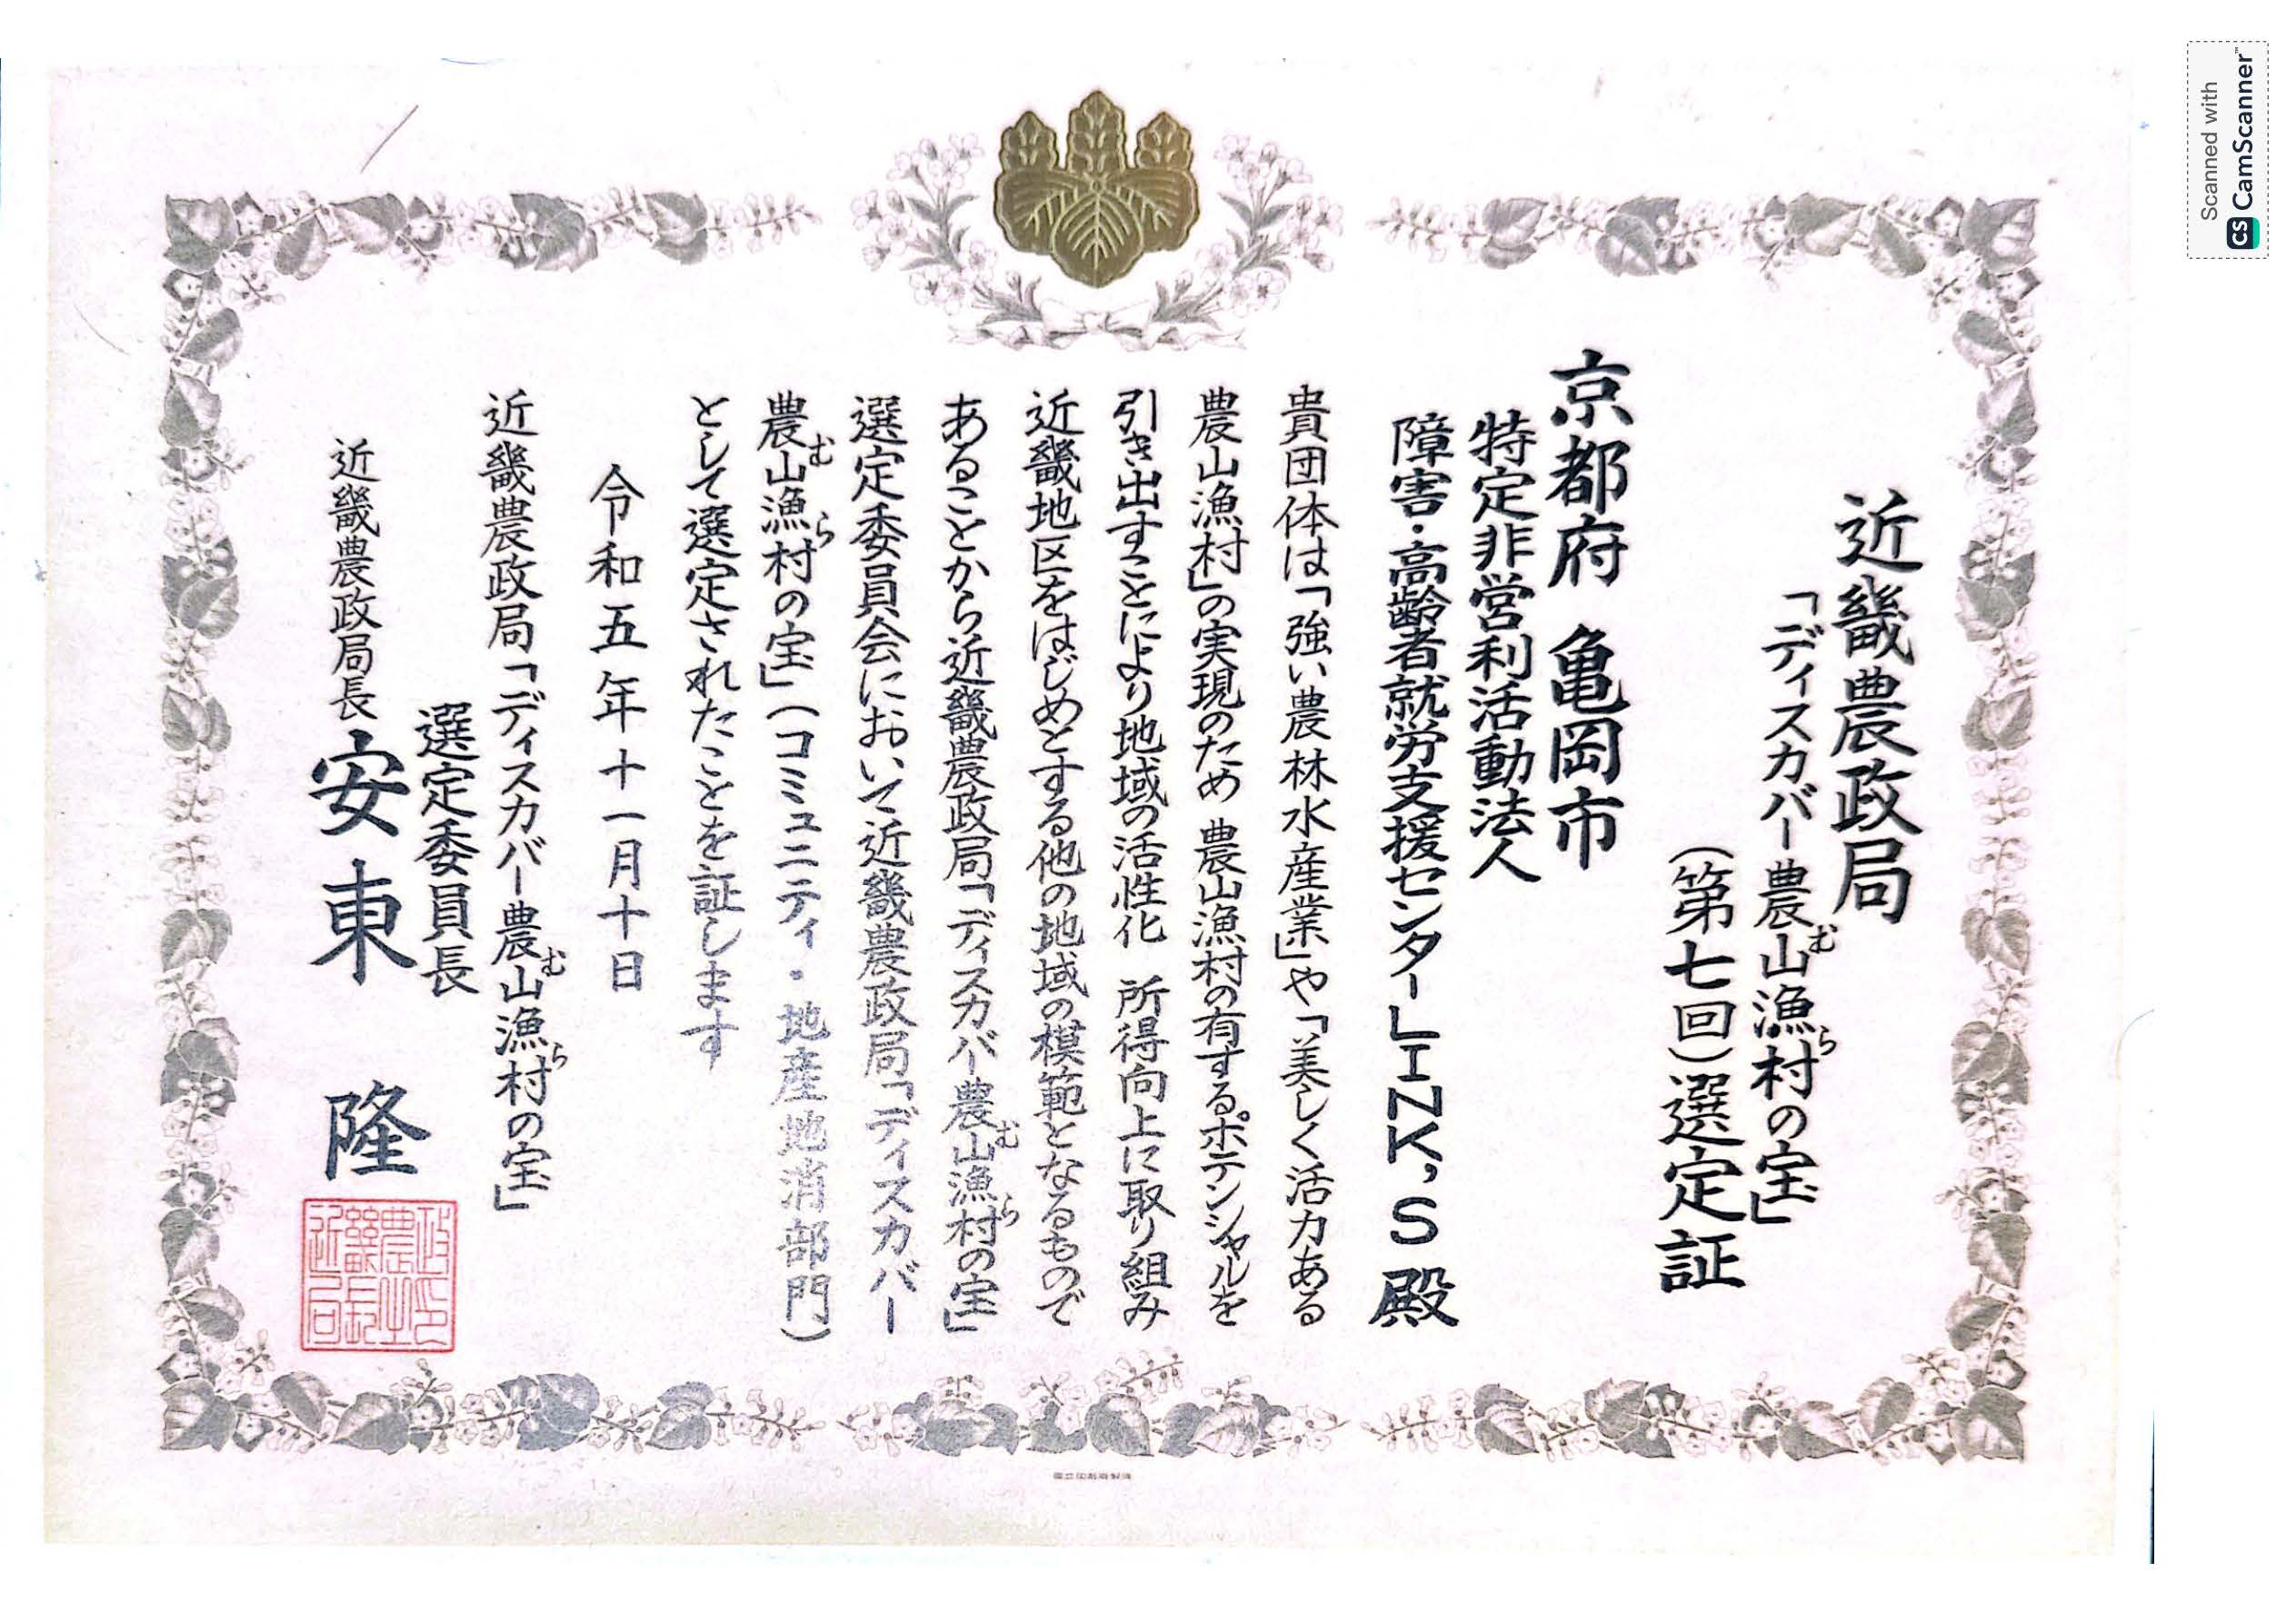 近畿農政局
「ディスカバー農山漁村の宝」
むら
(第七回)選定証
京都府 亀岡市
特定非営利活動法人
障害・高齢者就労支援センターLINK,S 殿
貴団体は「強い農林水産業」や「美しく活力ある
農山漁村」の実現のため 農山漁村の有するポテンシャルを
引き出すことにより地域の活性化 所得向上に取り組み
近畿地区をはじめとする他の地域の模範となるもので
あることから近畿農政局「ディスカバー農山漁村の宝」
むら
選定委員会において近畿農政局「ディスカバー
農山漁村の宝」(コミュニティ・地産地消部門)
むら
として選定されたことを証します
令和五年十一月十日
近畿農政局「ディスカバー農山漁村の宝」
むら
選定委員長
近畿農政局長 安東 隆
近畿農政局長之印
国立印刷局製造
Scanned with
CS CamScanner™